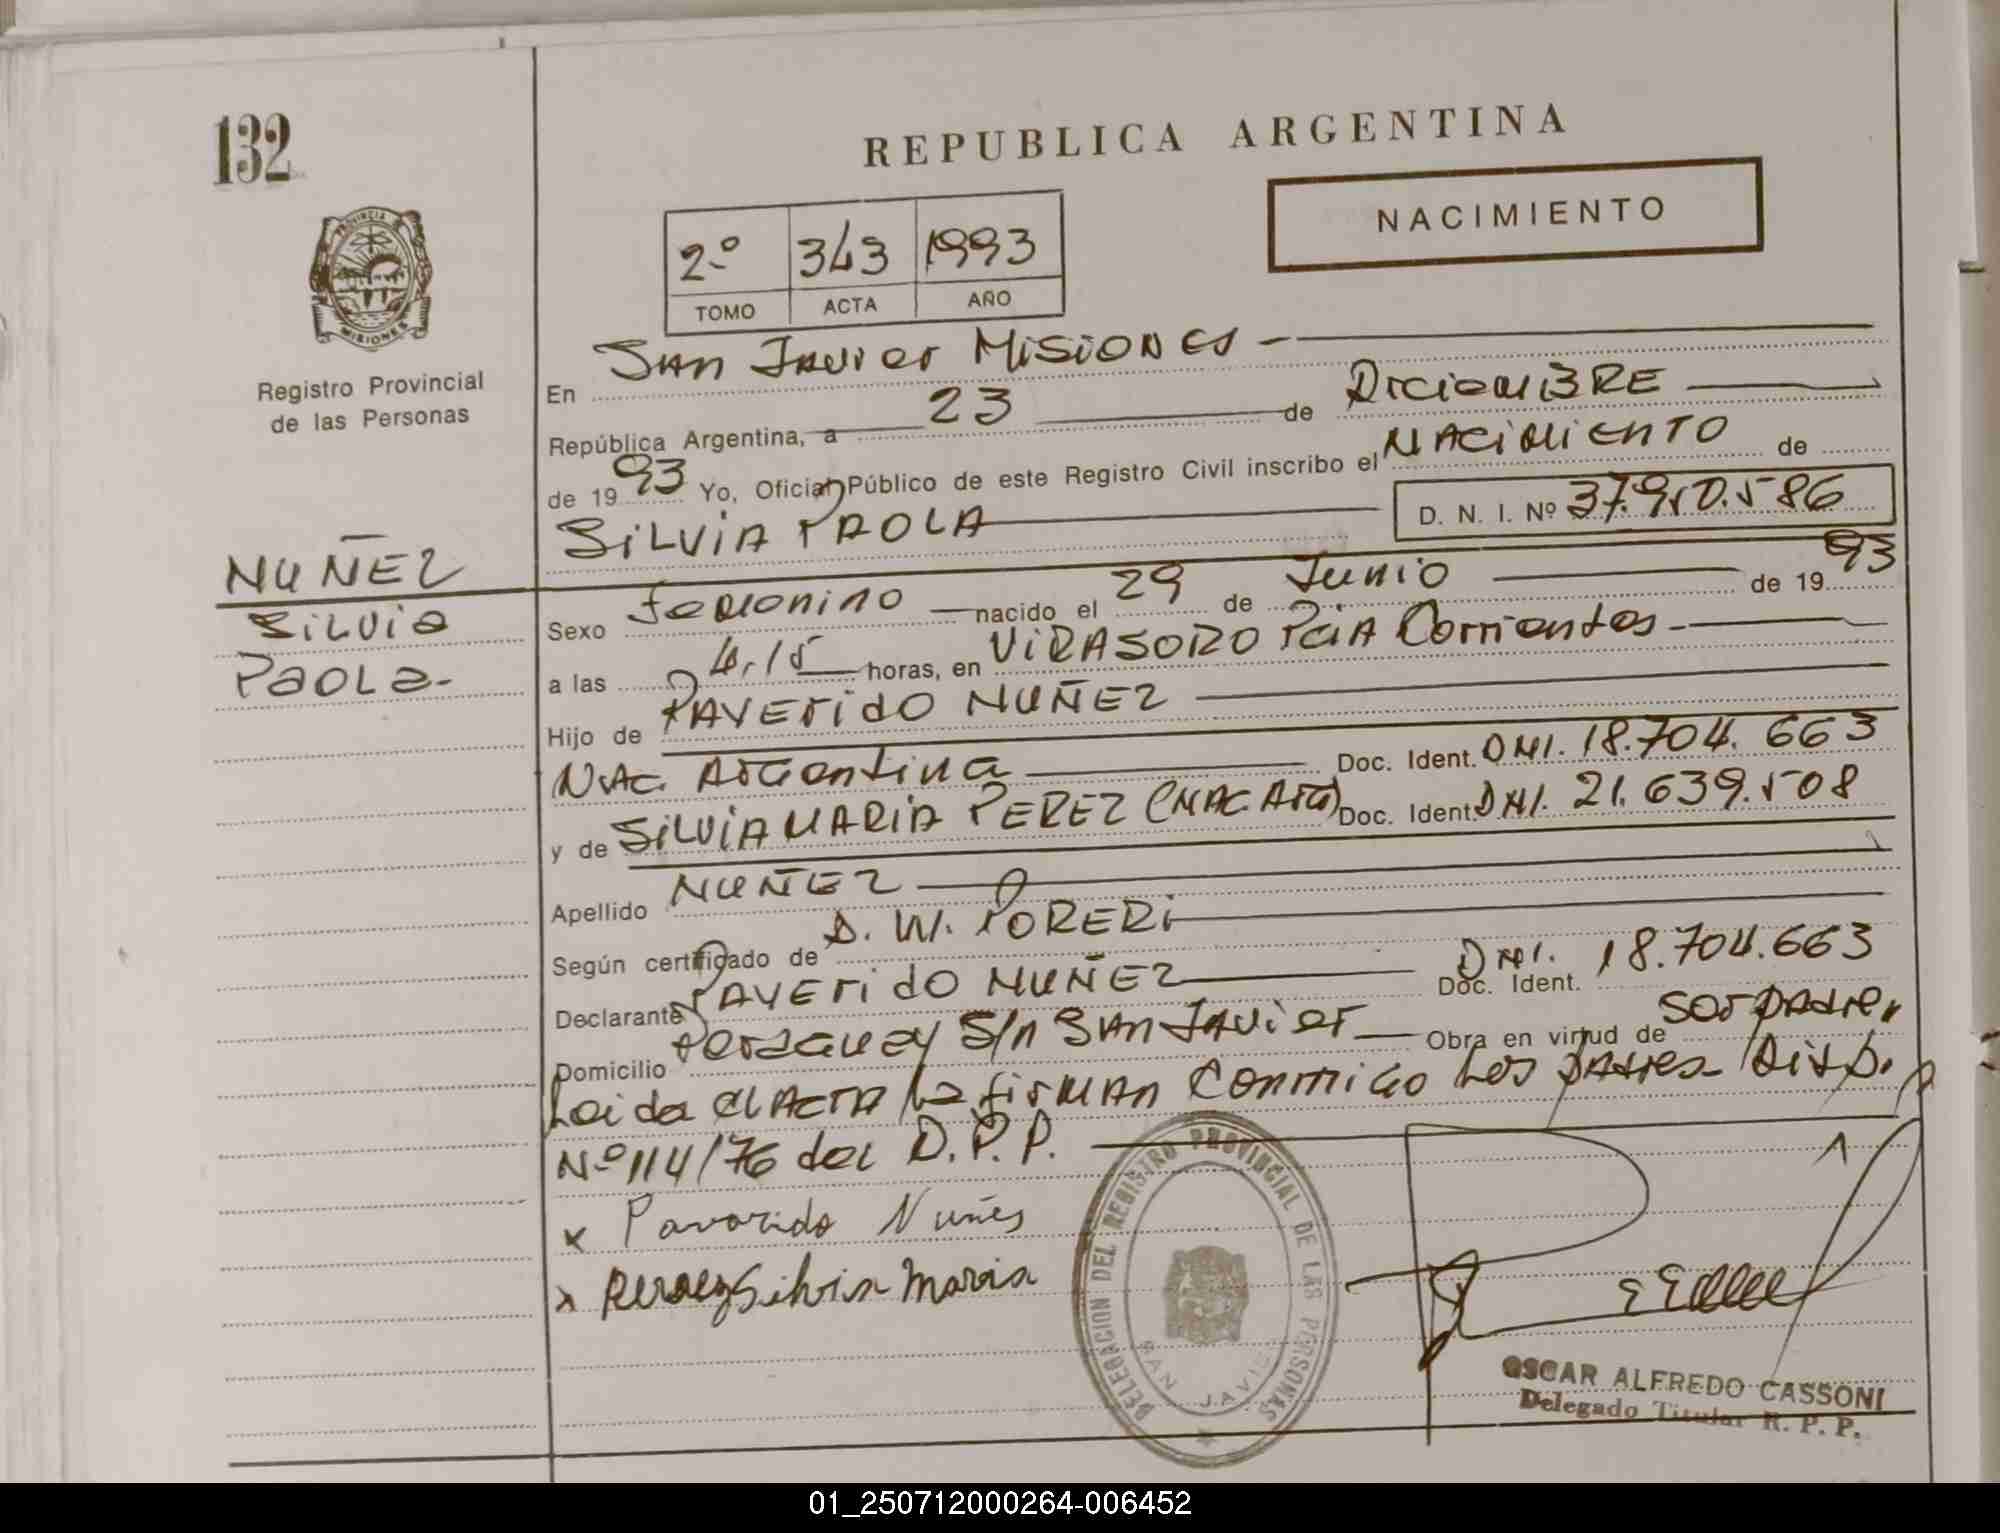 132
REPUBLICA ARGENTINA
NACIMIENTO
2º 343 1993
TOMO ACTA AÑO
PROVINCIA DE MISIONES
Registro Provincial
de las Personas
En San Javier Misiones -
República Argentina, a 23 de Diciembre
de 1993 Yo, Oficial Público de este Registro Civil inscribo el Nacimiento de
Silvia Paola D. N. I. Nº 37.910.586
NUÑEZ
Silvia
Paola-
Sexo Femenino nacido el 29 de Junio de 1993
a las 4,15 horas, en Virasoro Pcia Corrientes-
Hijo de Paverido Nuñez
Nac. Argentina Doc. Ident. DNI. 18.704.663
y de Silvia Maria Perez (Nac Arg) Doc. Ident. DNI. 21.639.508
Apellido Nuñez
Según certificado de D. W. Poreri
Declarante Paverido Nuñez Doc. Ident. DNI. 18.704.663
Domicilio S/n San Javier Obra en virtud de ser padre,
Leida el Acta la firman conmigo los padres- Disp.
Nº 114/76 del D.P.P.
x Paverido Nuñes
x Silvia Maria
DELEGACION DEL REGISTRO PROVINCIAL DE LAS PERSONAS
SAN JAVIER
OSCAR ALFREDO CASSONI
Delegado Titular R. P. P.
01_250712000264-006452